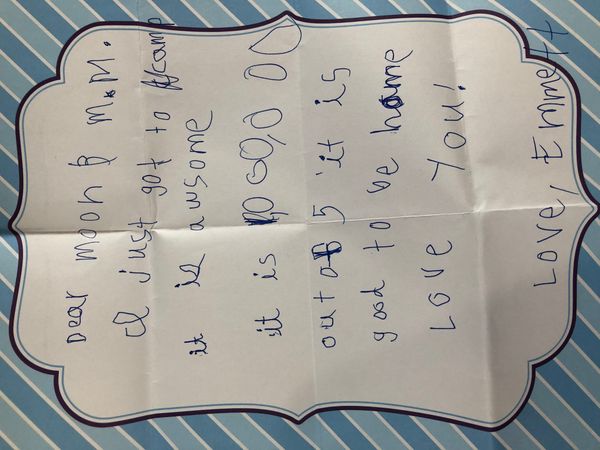 Dear moon & M.M.
I just got to camp
it is awsome
it is 1000,000
out of 5 it is
good to be home
LOVE YOU!
LOVE, Emmett